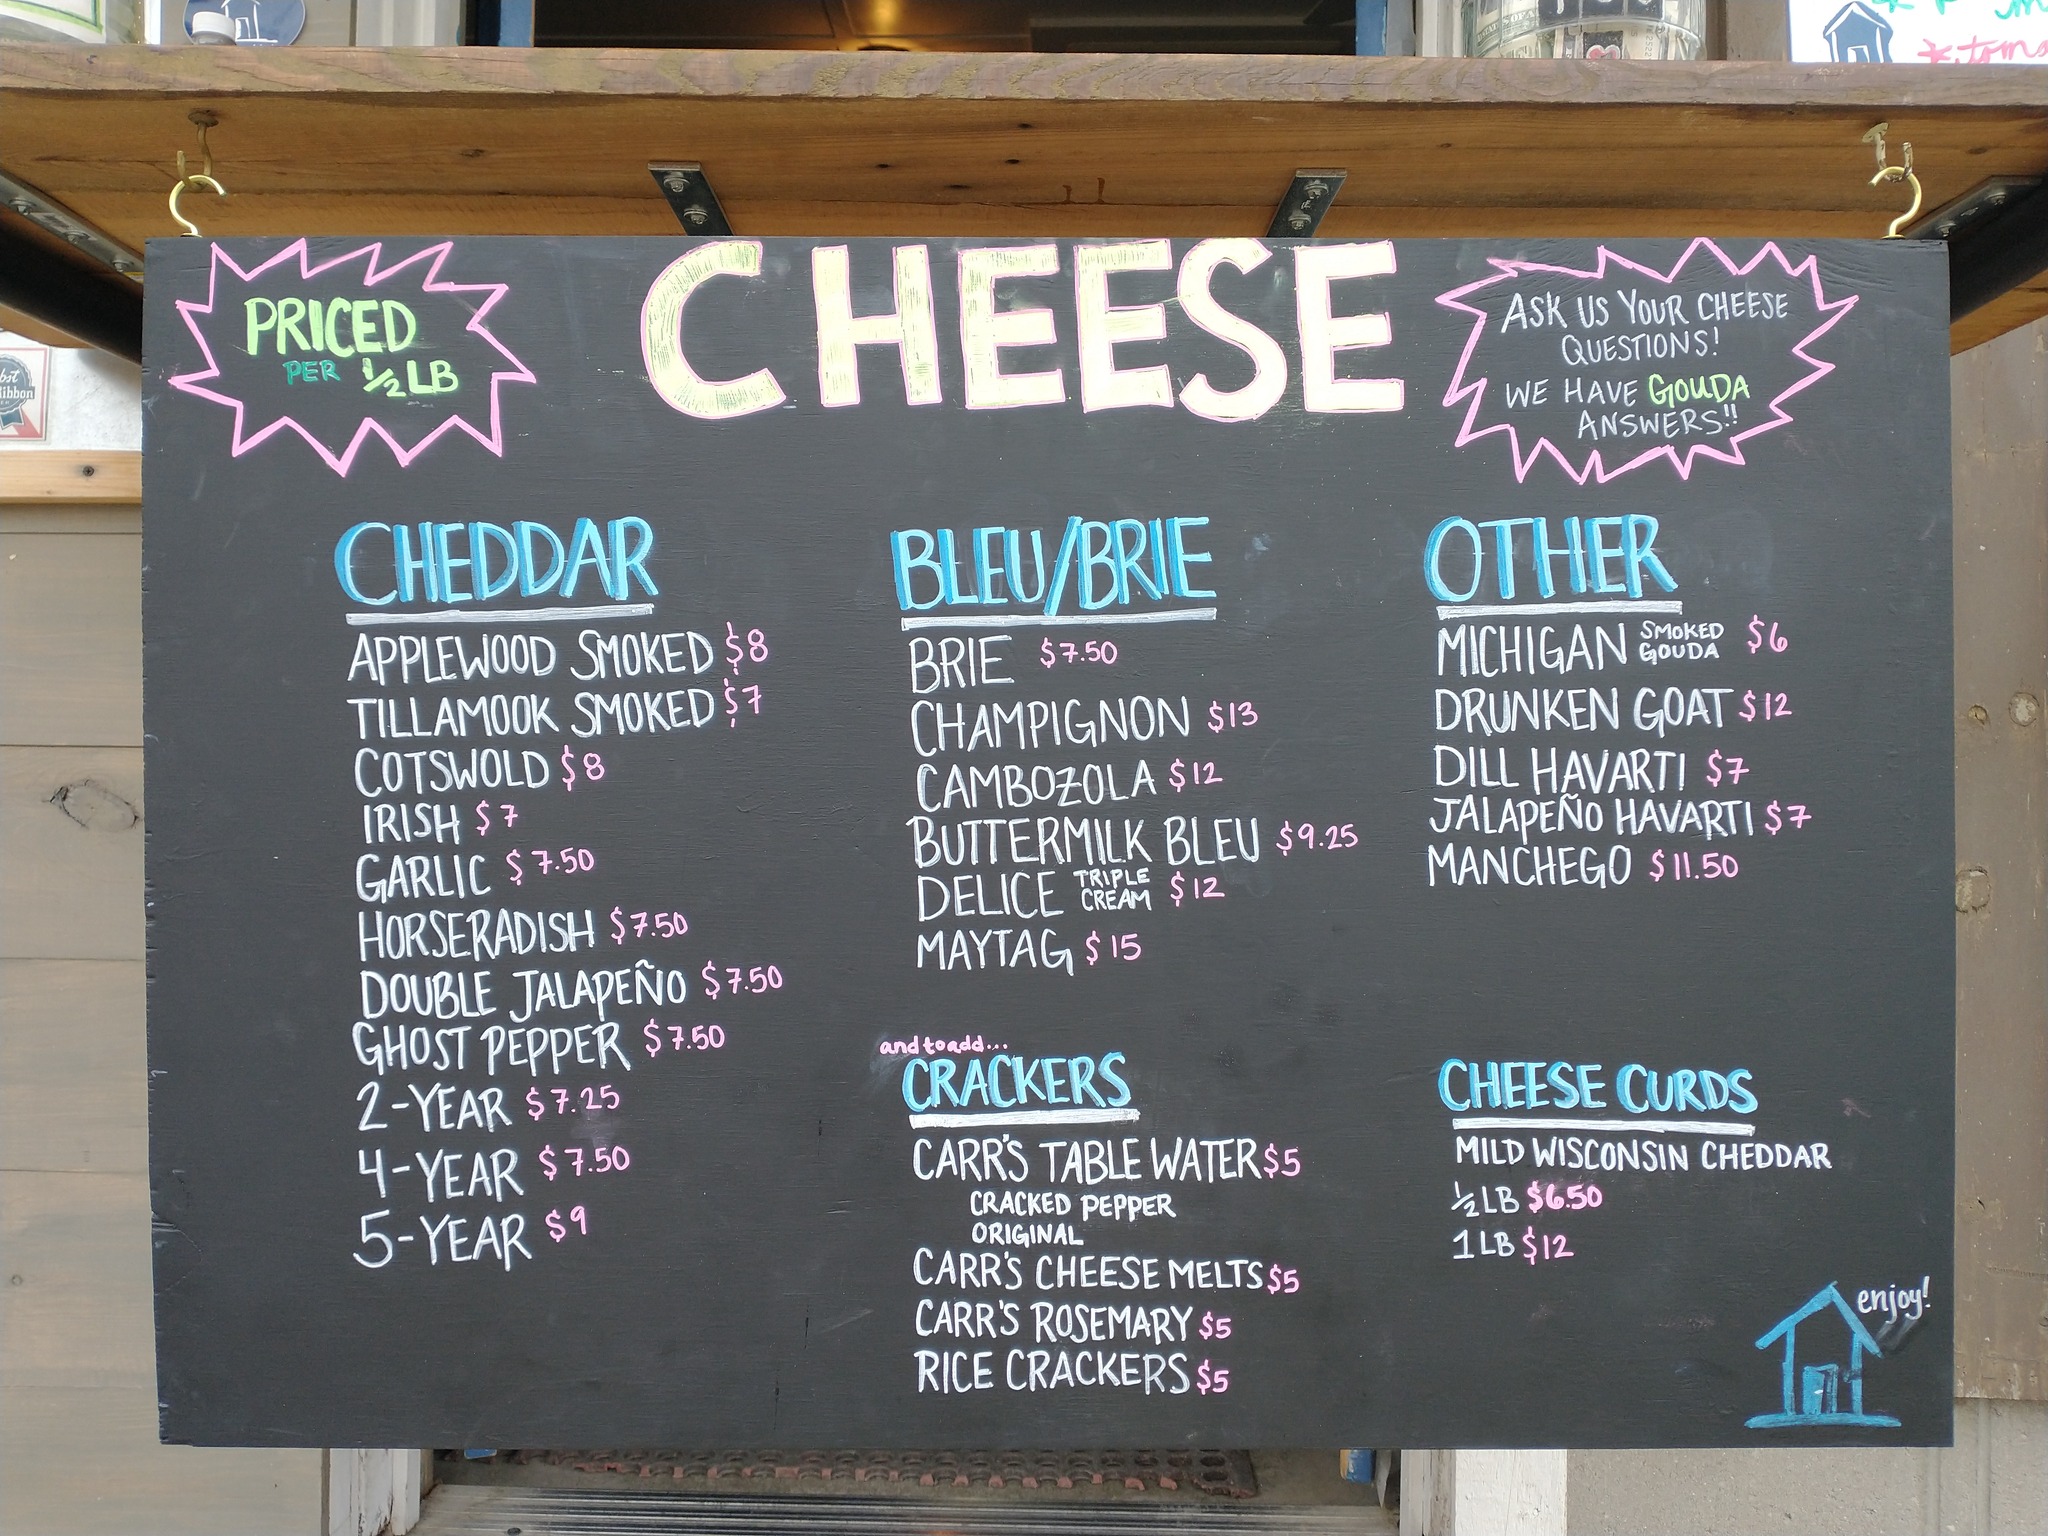 PRICED
PER 1/2 LB
CHEESE
ASK US YOUR CHEESE
QUESTIONS!
WE HAVE GOUDA
ANSWERS!!
CHEDDAR
APPLEWOOD SMOKED $8
TILLAMOOK SMOKED $7
COTSWOLD $8
IRISH $7
GARLIC $7.50
HORSERADISH $7.50
DOUBLE JALAPEÑO $7.50
GHOST PEPPER $7.50
2-YEAR $7.25
4-YEAR $7.50
5-YEAR $9
BLEU/BRIE
BRIE $7.50
CHAMPIGNON $13
CAMBOZOLA $12
BUTTERMILK BLEU $9.25
DELICE TRIPLE CREAM $12
MAYTAG $15
OTHER
MICHIGAN SMOKED GOUDA $6
DRUNKEN GOAT $12
DILL HAVARTI $7
JALAPEÑO HAVARTI $7
MANCHEGO $11.50
and to add...
CRACKERS
CARR'S TABLE WATER $5
CRACKED PEPPER
ORIGINAL
CARR'S CHEESE MELTS $5
CARR'S ROSEMARY $5
RICE CRACKERS $5
CHEESE CURDS
MILD WISCONSIN CHEDDAR
1/2 LB $6.50
1 LB $12
enjoy!